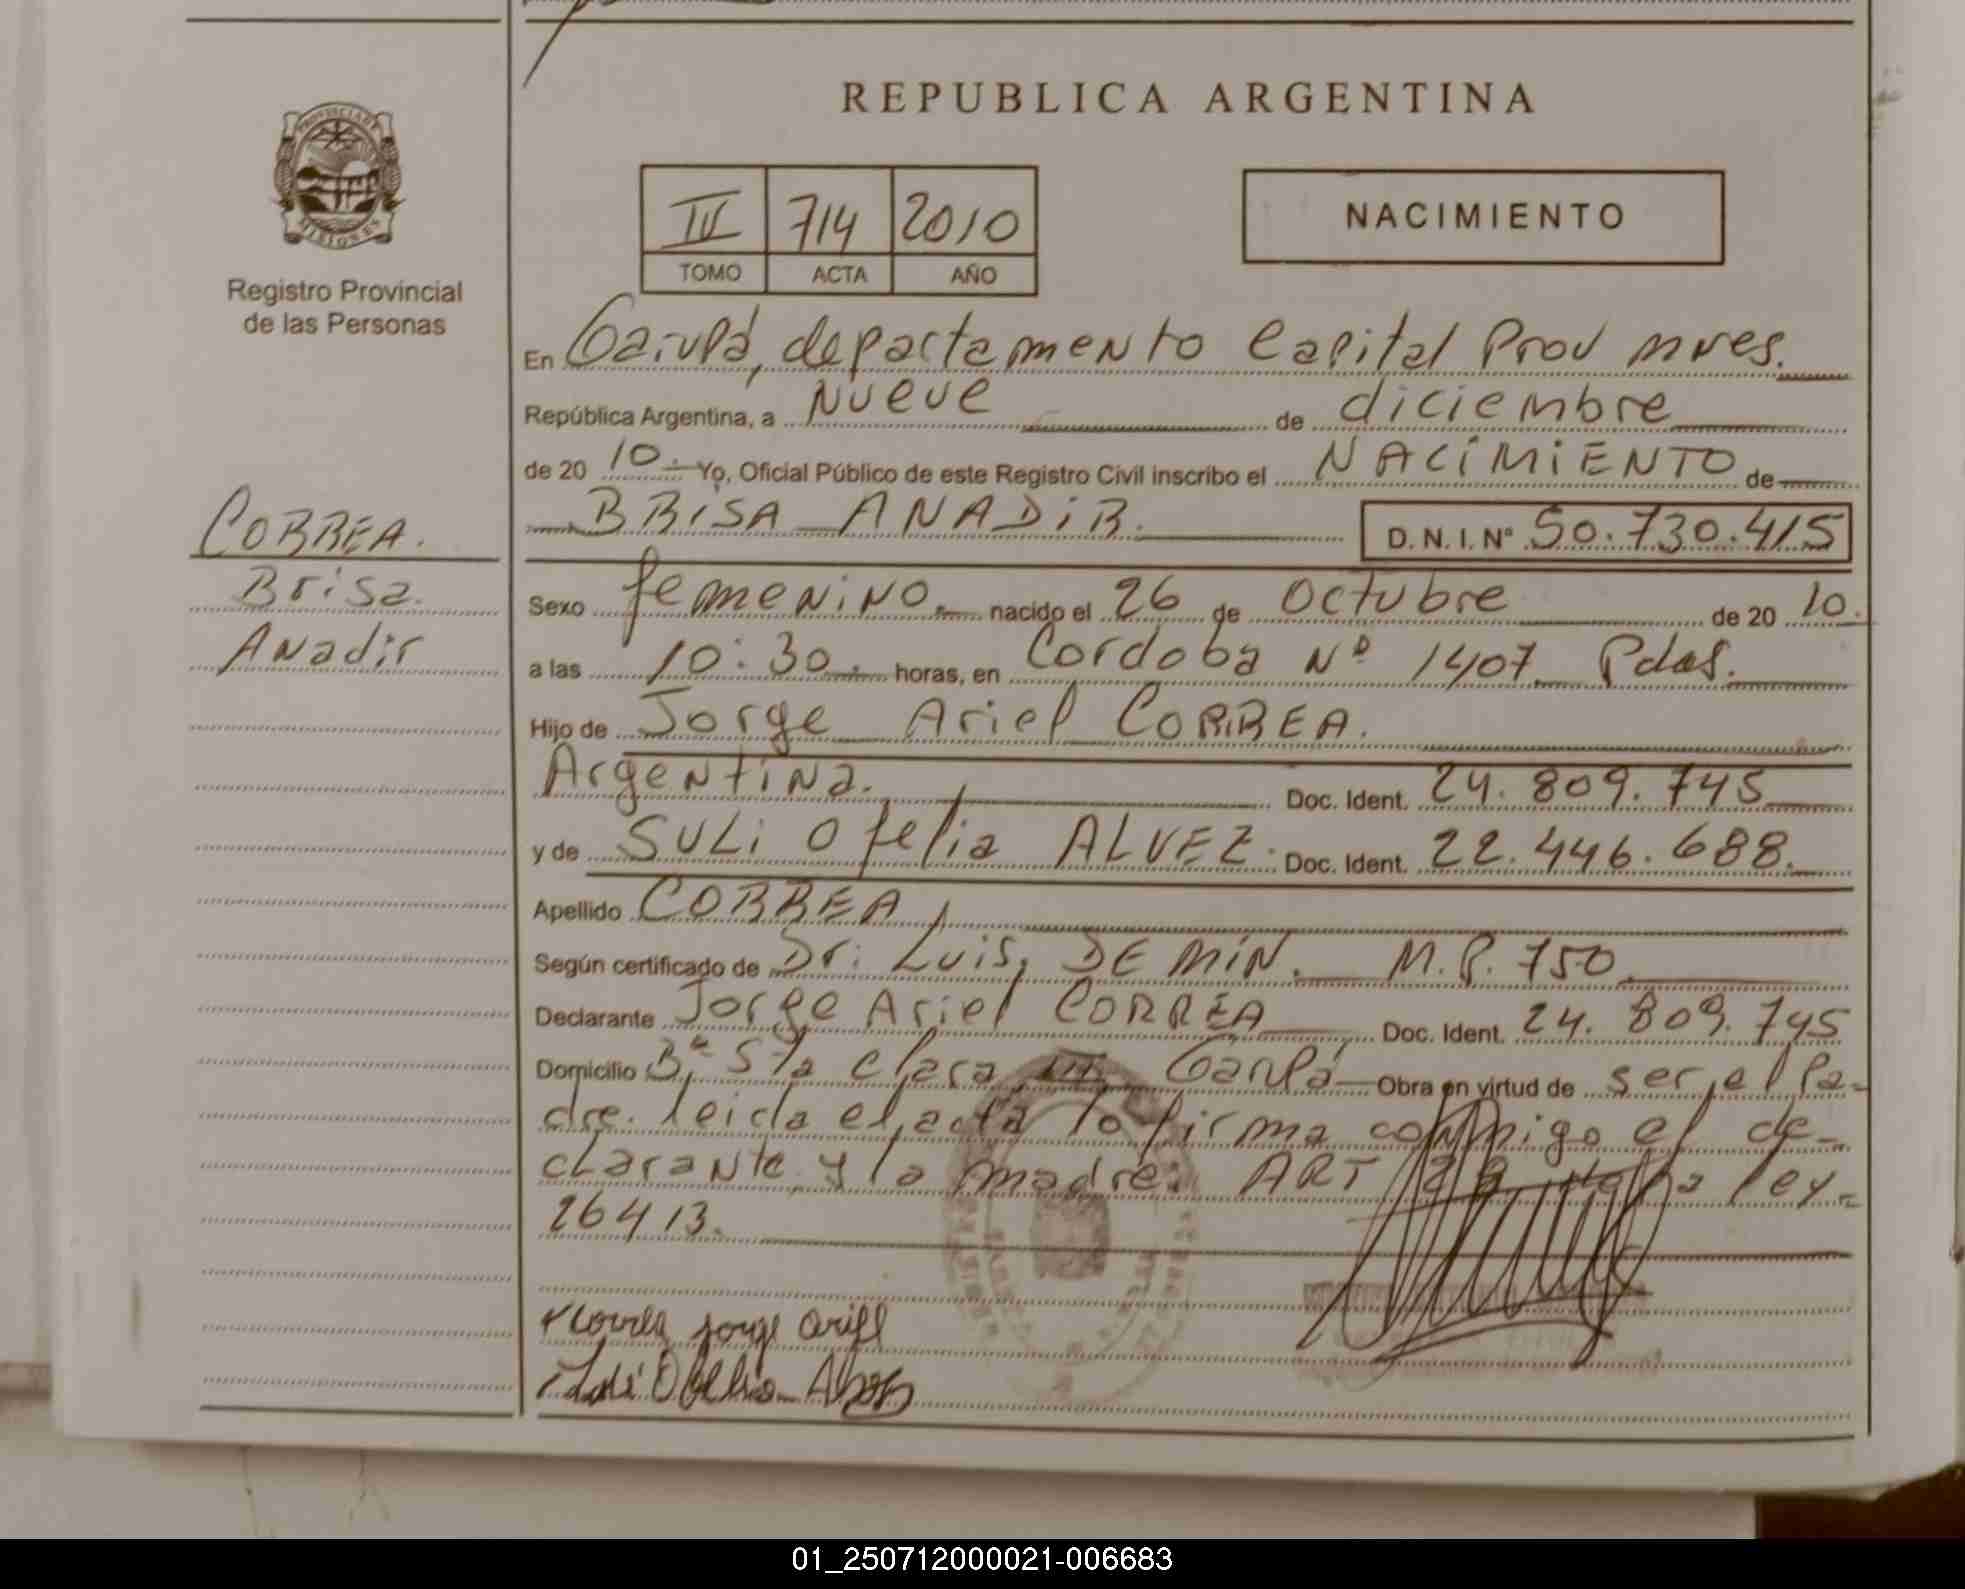 REPUBLICA ARGENTINA
PROVINCIA DE
MISIONES
Registro Provincial
de las Personas
IV 714 2010
TOMO ACTA AÑO
NACIMIENTO
En Garupá, departamento Capital Prov mnes.
República Argentina, a Nueve de diciembre
de 20 10. Yo, Oficial Público de este Registro Civil inscribo el NACIMIENTO de
BRISA ANADIR. D.N.I.Nº 50.730.415
CORREA.
Brisa
Anadir
Sexo femenino. nacido el 26 de Octubre de 20 10.
a las 10:30. horas, en Cordoba Nº 1407 Pdas.
Hijo de Jorge Ariel CORREA.
Argentina. Doc. Ident. 24.809.745
y de SULI Ofelia ALVEZ. Doc. Ident. 22.446.688.
Apellido CORREA
Según certificado de Dr. Luis, DEMIN. M.P. 750.
Declarante Jorge Ariel CORREA Doc. Ident. 24.809.745
Domicilio Bº Sta clara III Garupá Obra en virtud de ser el Pa-
dre. leida el acta lo firma conmigo el de-
clarante y la madre. ART 28 de la ley-
26413.
Correa Jorge Ariel